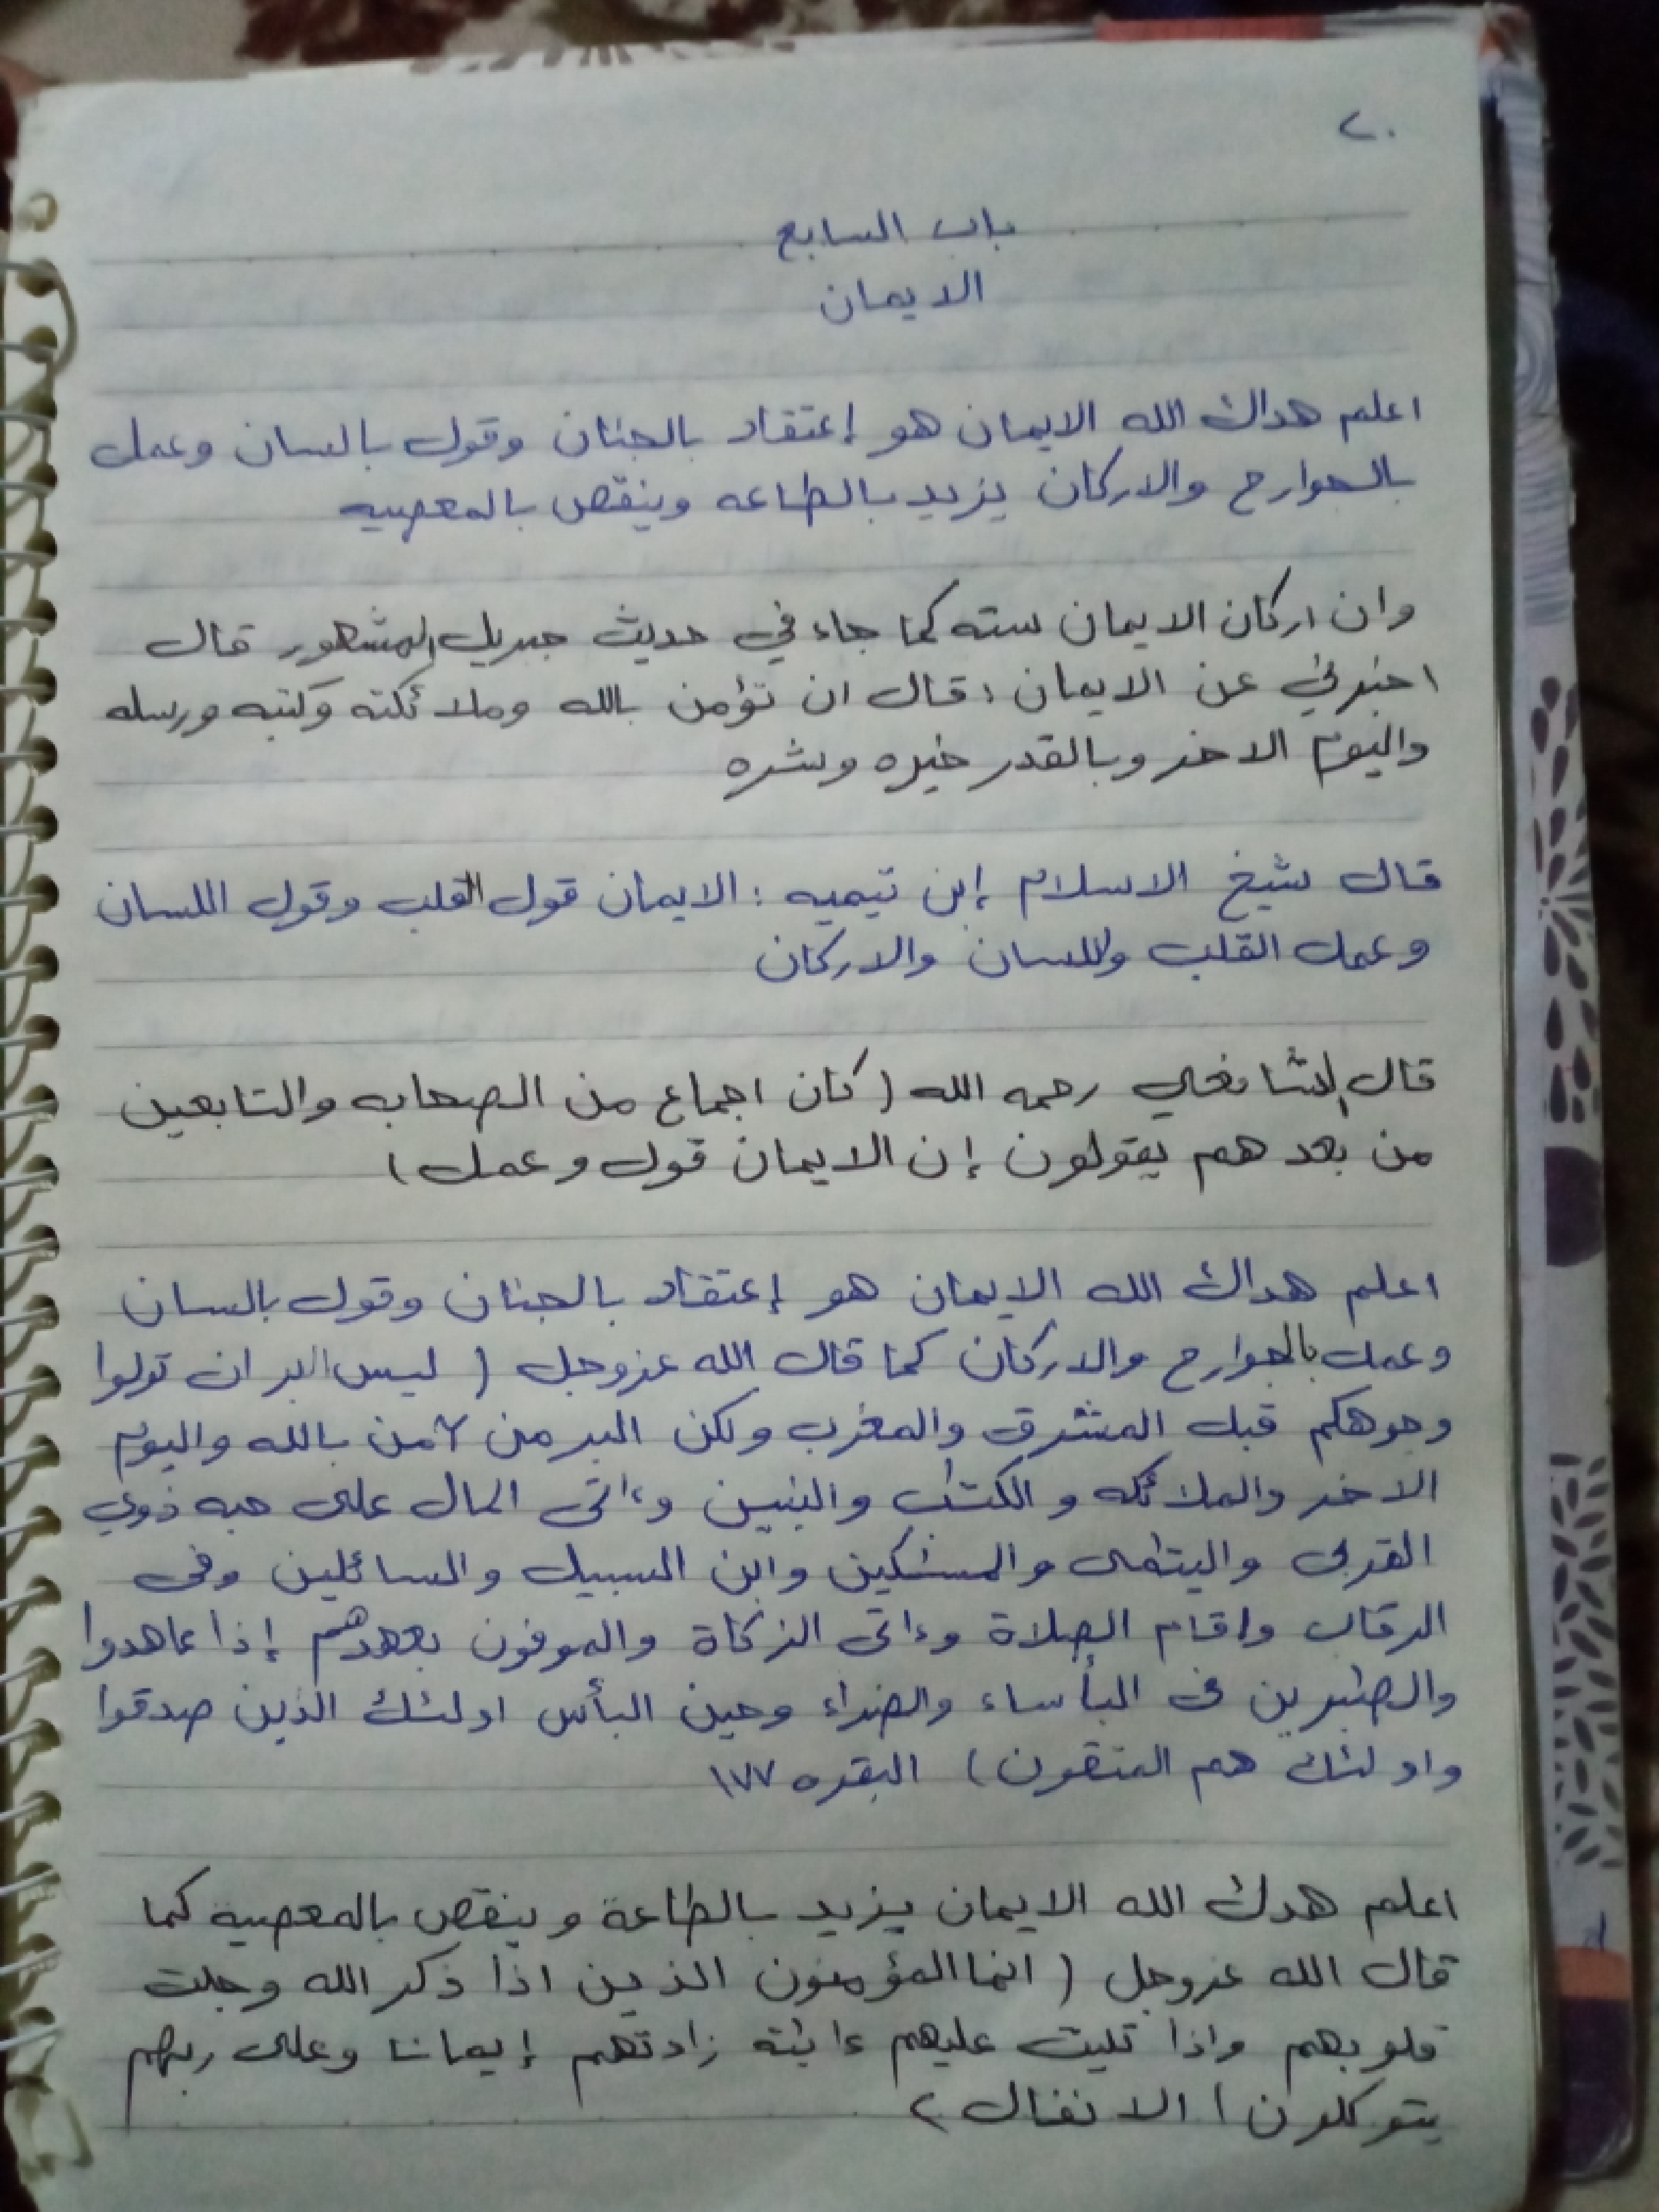 ٢٠
باب السابع
الايمان
اعلم هداك الله الايمان هو إعتقاد بالجنان وقول بالسان وعمل
بالجوارح والاركان يزيد بالطاعه وينقص بالمعصيه
وان اركان الايمان سته كما جاء في حديث جبريل المشهور قال
اخبرني عن الايمان : قال ان تؤمن بالله وملائكته وكتبه ورسله
واليوم الاخر وبالقدر خيره وشره
قال شيخ الاسلام إبن تيميه : الايمان قول القلب وقول اللسان
وعمل القلب واللسان والاركان
قال الشافعي رحمه الله ( كان اجماع من الصحابه والتابعين
من بعدهم يقولون إن الايمان قول وعمل )
اعلم هداك الله الايمان هو إعتقاد بالجنان وقول بالسان
وعمل بالجوارح والاركان كما قال الله عزوجل ( ليس البر ان تولوا
وجوهكم قبل المشرق والمغرب ولكن البر من ءامن بالله واليوم
الاخر والملائكه والكتٰب والنبين وءاتى المال على حبه ذوي
القربى واليتٰمى والمسٰكين وابن السبيل والسائلين وفى
الرقاب واقام الصلاة وءاتى الزكاة والموفون بعهدهم إذا عاهدوا
والصٰبرين فى البأساء والضراء وحين البأس اولئك الذين صدقوا
واولئك هم المتقون ) البقره ١٧٧
اعلم هدك الله الايمان يزيد بالطاعة وينقص بالمعصية كما
قال الله عزوجل ( انما المؤمنون الذين اذا ذكر الله وجلت
قلوبهم واذا تليت عليهم ءايٰته زادتهم إيمانا وعلى ربهم
يتوكلون ) الانفال ٢